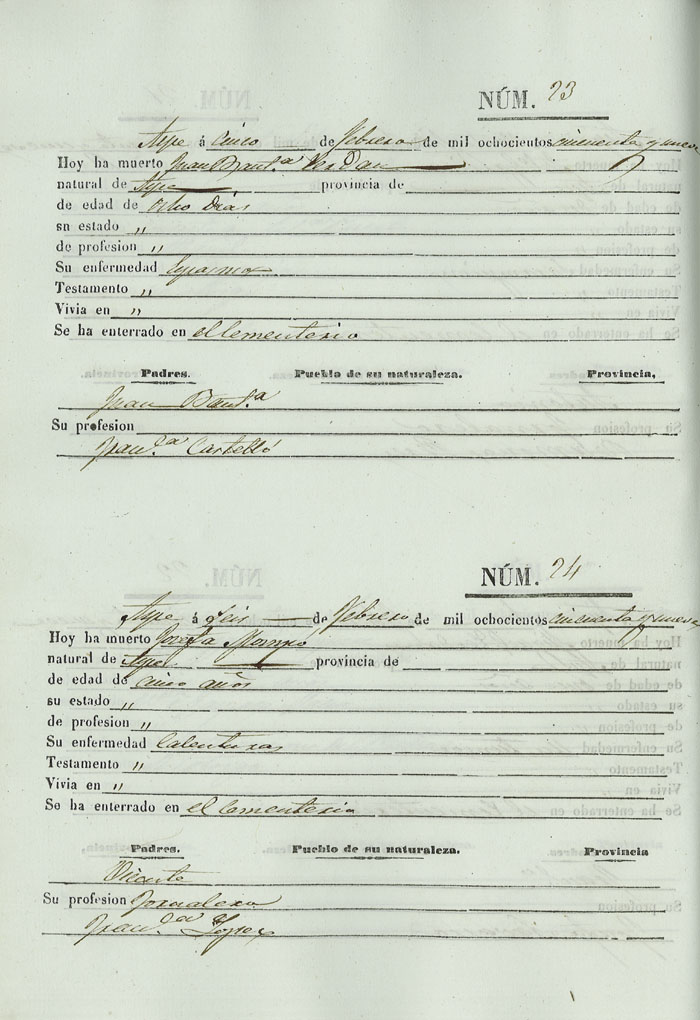 NÚM. 23
Aspe á cinco de Febrero de mil ochocientos cincuenta y nueve
Hoy ha muerto Juan Baut.ª
natural de Aspe provincia de
de edad de ocho dias
sn estado "
de profesion "
Su enfermedad Espasmo
Testamento "
Vivia en "
Se ha enterrado en el Cementerio
Padres. Pueblo de su naturaleza. Provincia,
Juan Baut.ª
Su profesion
Fran.ca Castelló
NÚM. 24
Aspe á seis de Febrero de mil ochocientos cincuenta y nueve
Hoy ha muerto Josefa
natural de Aspe provincia de
de edad de cinco años
su estado "
de profesion "
Su enfermedad Calenturas
Testamento "
Vivia en "
Se ha enterrado en el Cementerio
Padres. Pueblo de su naturaleza. Provincia
Vicente
Su profesion Jornalero
Fran.ca Lopez